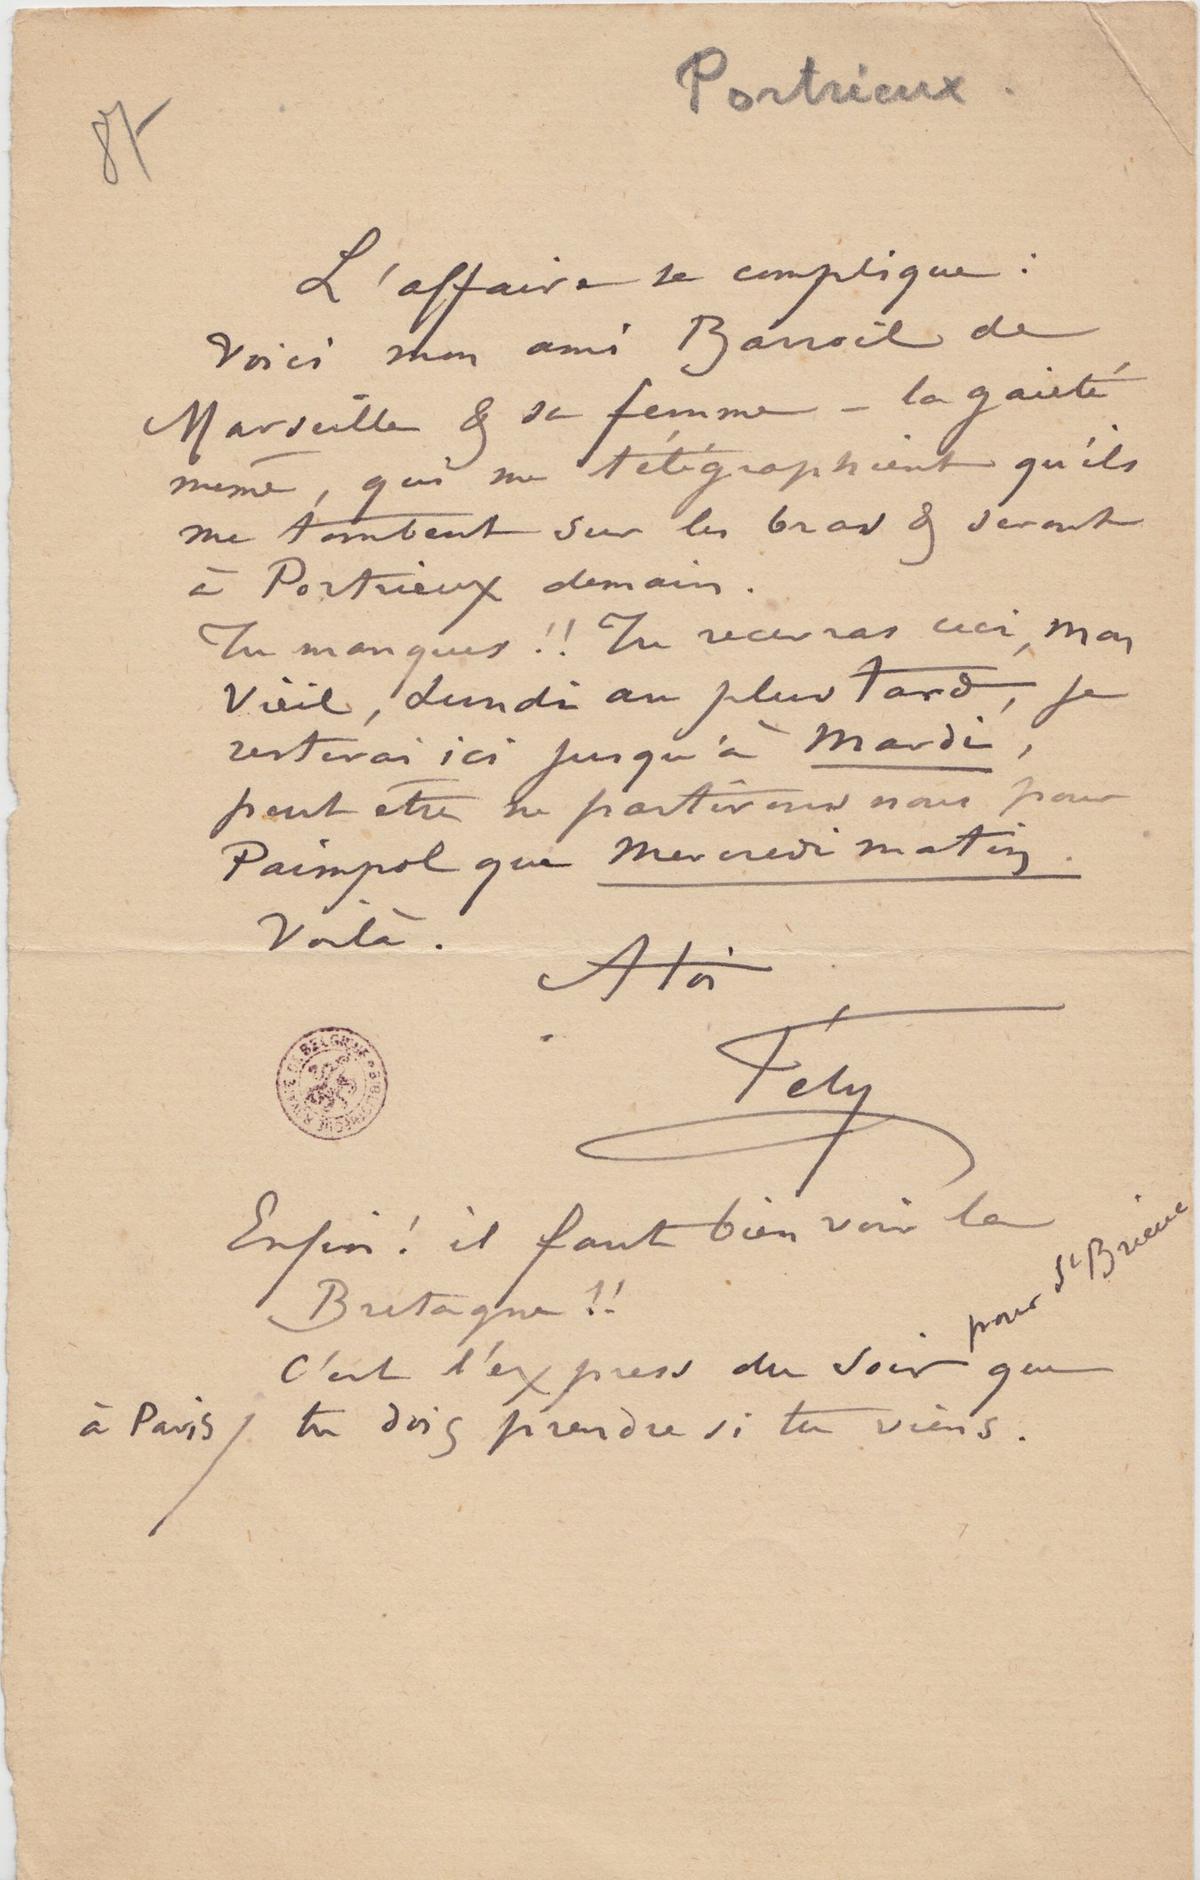 Portrieux.
87
L'affaire se complique :
Voici mon ami Barroil de
Marseille & sa femme – la gaieté
même, qui me télégraphient qu'ils
me tombent sur les bras & seront
à Portrieux demain.
Tu manques !! Tu recevras ceci, mon
Vieil, Lundi au plus tard, je
resterai ici jusqu'à Mardi,
peut être ne partirons nous pour
Paimpol que Mercredi matin.
Voilà.
A toi
Fély
BIBLIOTHEQUE ROYALE DE BELGIQUE
Enfin ! il faut bien voir la
Bretagne !!
pour St Brieuc
C'est l'express du soir que
à Paris / tu dois prendre si tu viens.